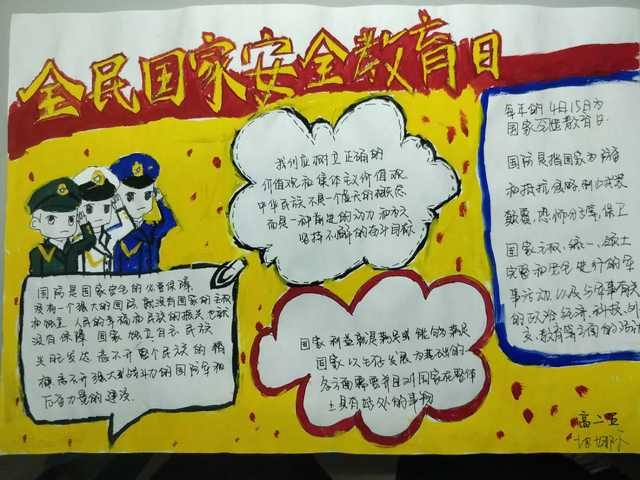 全民国家安全教育日
我们应树立正确的
价值观和集体主义价值观
中华民族不是一个庞大的概念
而是一种前进的动力和方
坚持不懈的奋斗目标
每年的4月15日为
国家安全教育日.
国防是指国家为防备
和抵抗侵略,制止武装
颠覆,恐怖分子等,保卫
国家主权,统一,领土
完整和安全进行的军
事活动,以及与军事有关
的政治经济,科技,外
交教育等方面的活动
国防是国家安全的必要保障,
没有一个强大的国防就没有国家的主权
和独立 人民的幸福和民族的振兴也就
没有保障 国家 独立自主 民族
发达 离不开整个民族的精
神离不开强大战斗力的国防军和
力量的建设.
国家利益就是满足或能够满足
国家以生存发展为基础的
多方面需要并且对国家在整体
上具有好处的事物
高二